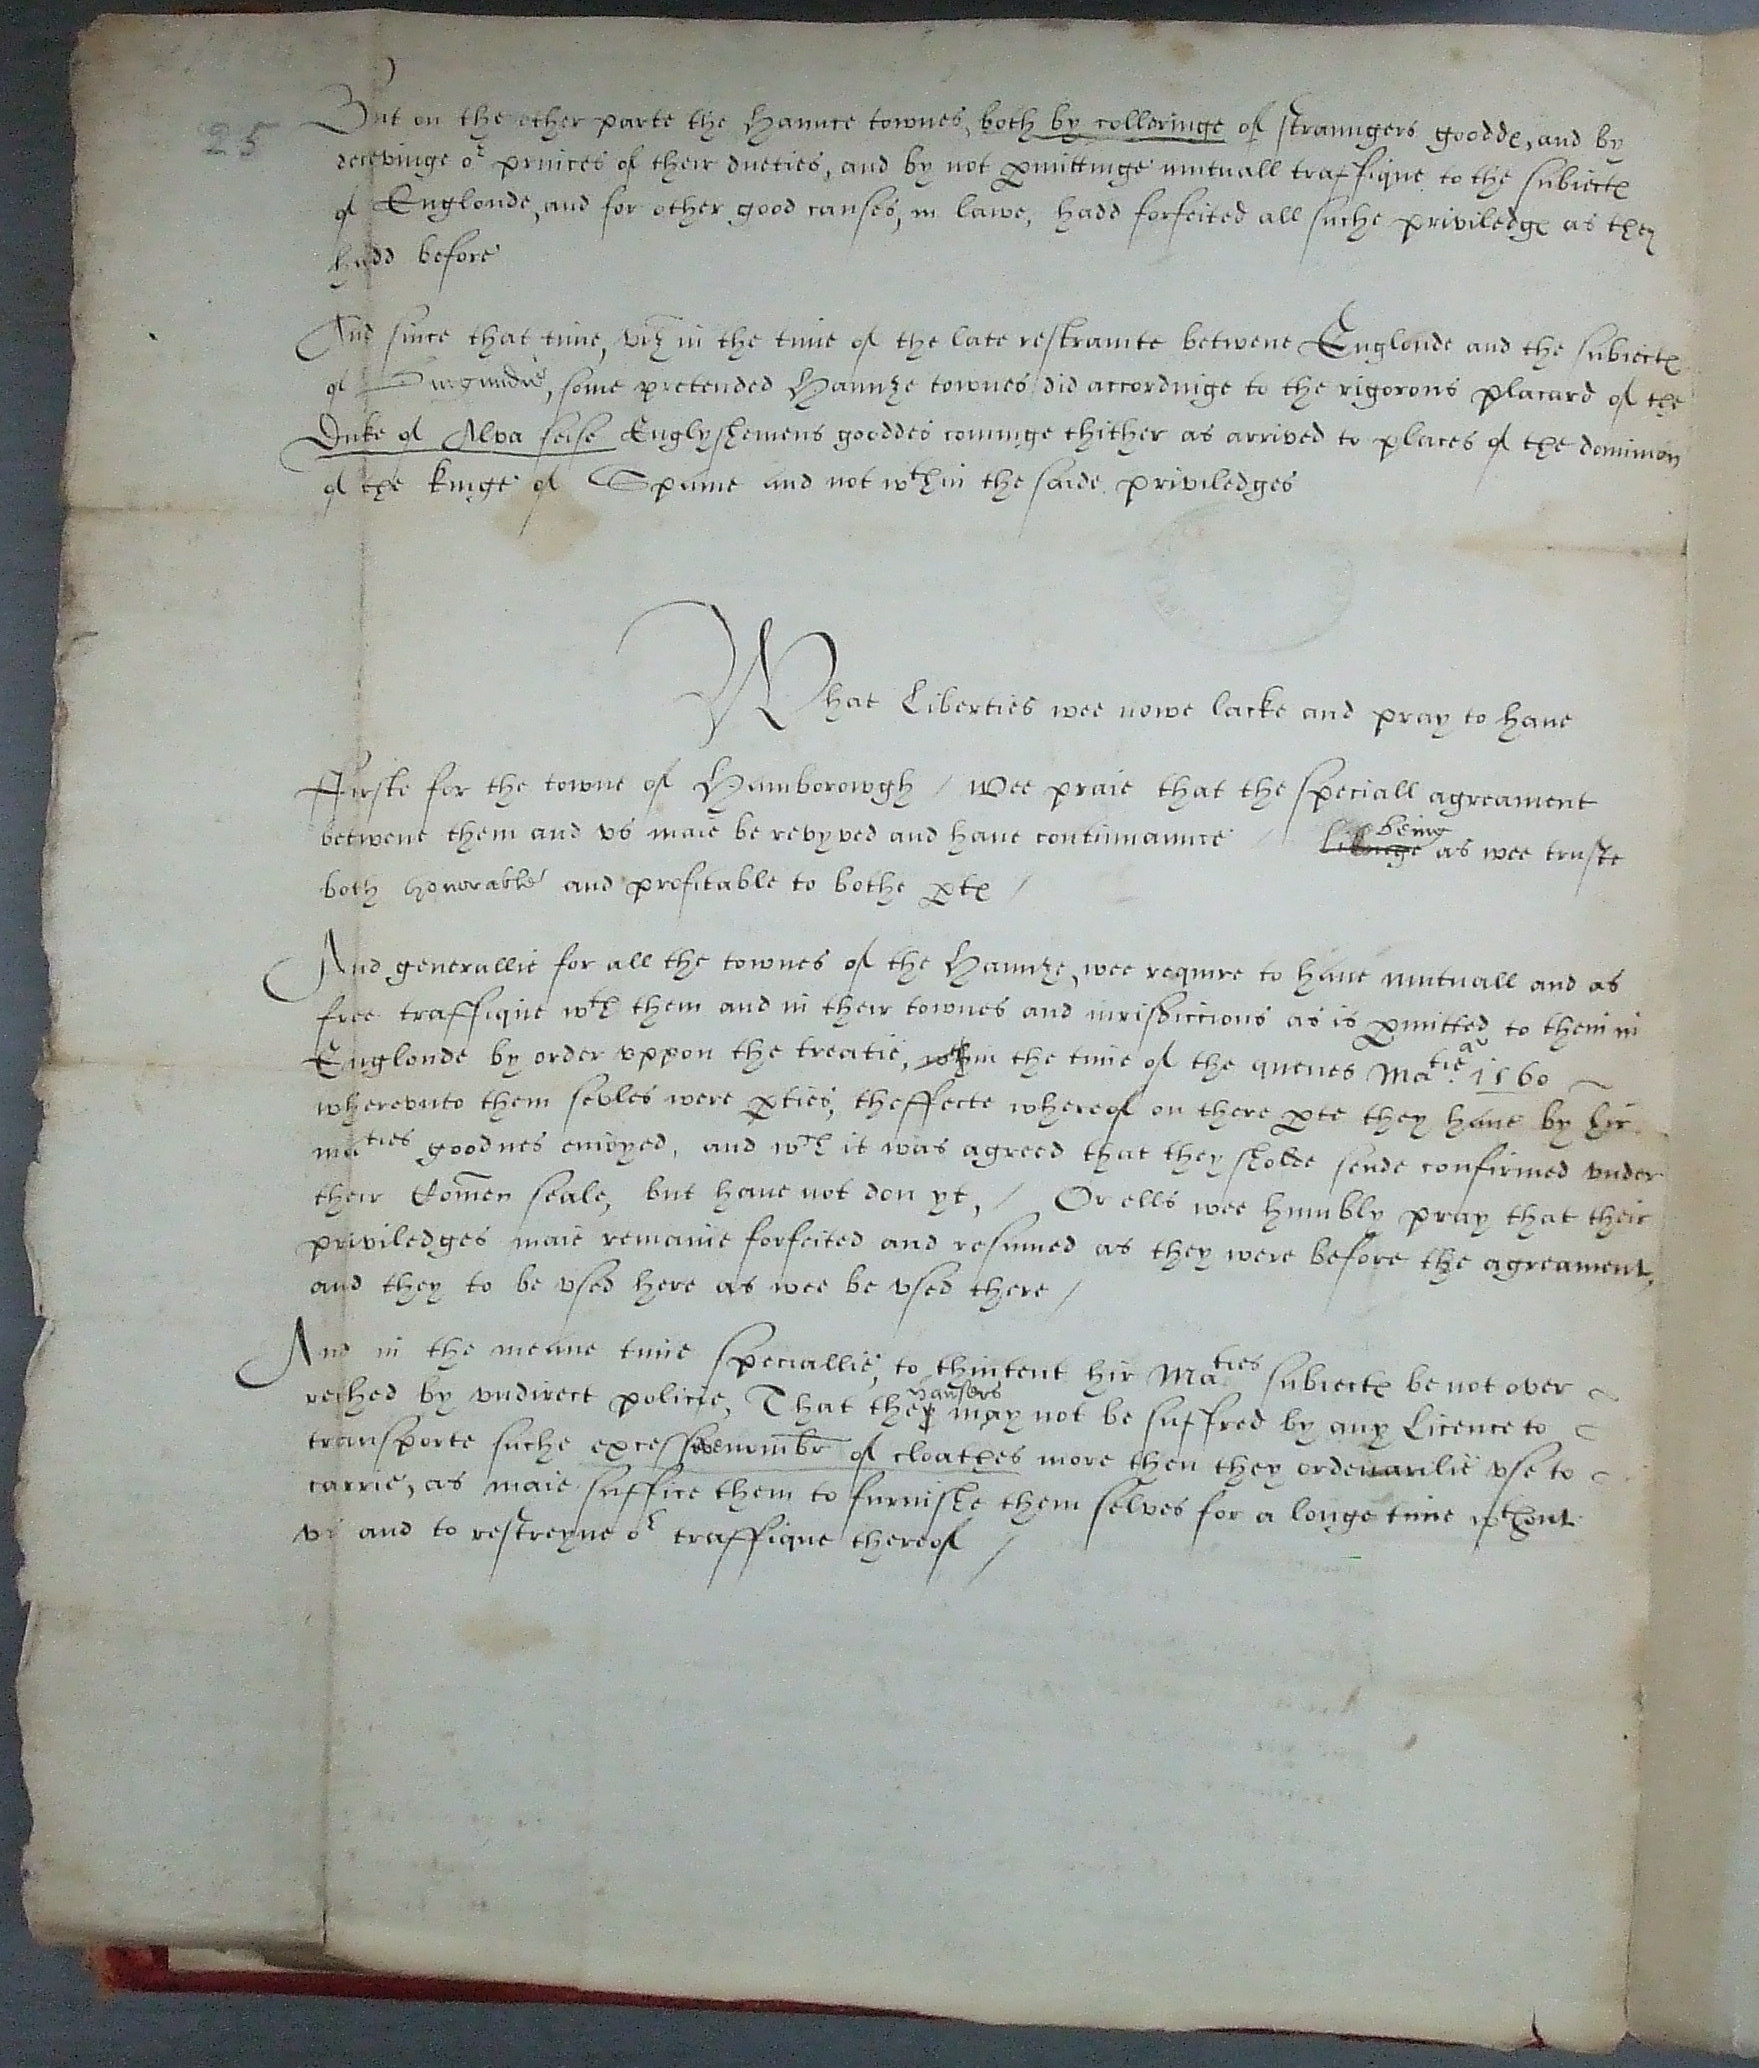 25
But on the other parte the Haunce townes, both by colleringe of straungers goodds, and by
deceivinge or princes of their dueties, and by not pmittinge mutuall traffique to the subiects
of Englonde, and for other good causes, in lawe, hadd forfeited all suche priviledgs as they
hadd before
And since that time, viz in the time of the late restrainte betwene Englonde and the subiects
of Burgundie, some pretended Haunze townes did accordinge to the rigorous placard of the
Duke of Alva seise Englyshemens gooddes cominge thither as arrived to places of the dominion
of the kinge of Spaine and not wthin the saide priviledges
What Liberties wee nowe lacke and pray to haue
Firste for the towne of Hamborowgh / Wee praie that the speciall agreament
betwene them and vs maie be revyved and haue continuaunce / being as wee truste
both honorable and profitable to bothe pts /
And generallie for all the townes of the Haunze, wee require to haue mutuall and as
free traffique wth them and in their townes and iurisdiccions as is pmitted to them in
Englonde by order vppon the treatie, in the time of the quenes Matie ao 1560
wherevnto them selves were pties, theffecte whereof on there pte they haue by hir
maties goodnes enioyed, and wch it was agreed that they sholde sende confirmed vnder
their Comen seale, but haue not don yt, / Or ells wee humbly pray that their
priviledges maie remaine forfeited and resumed as they were before the agreament,
and they to be vsed here as wee be vsed there /
And in the meane time speciallie, to thintent hir Maties subiects be not over
reched by vndirect policie, That the hansers may not be suffred by any Licence to
transporte suche excessive nombr of cloathes more then they ordenarilie vse to
carrie, as maie suffice them to furnishe them selves for a longe time wthout
vs and to restreyne or traffique thereof /